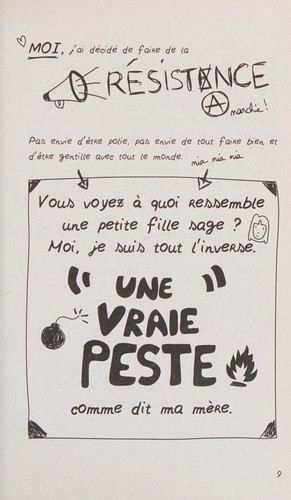 MOI, j'ai décidé de faire de la
RÉSISTANCE
Anarchie!
Pas envie d'être polie, pas envie de tout faire bien et
d'être gentille avec tout le monde. nia nia nia
Vous voyez à quoi ressemble
une petite fille sage ?
Moi, je suis tout l'inverse.
" UNE "
VRAIE
PESTE
comme dit ma mère.
9